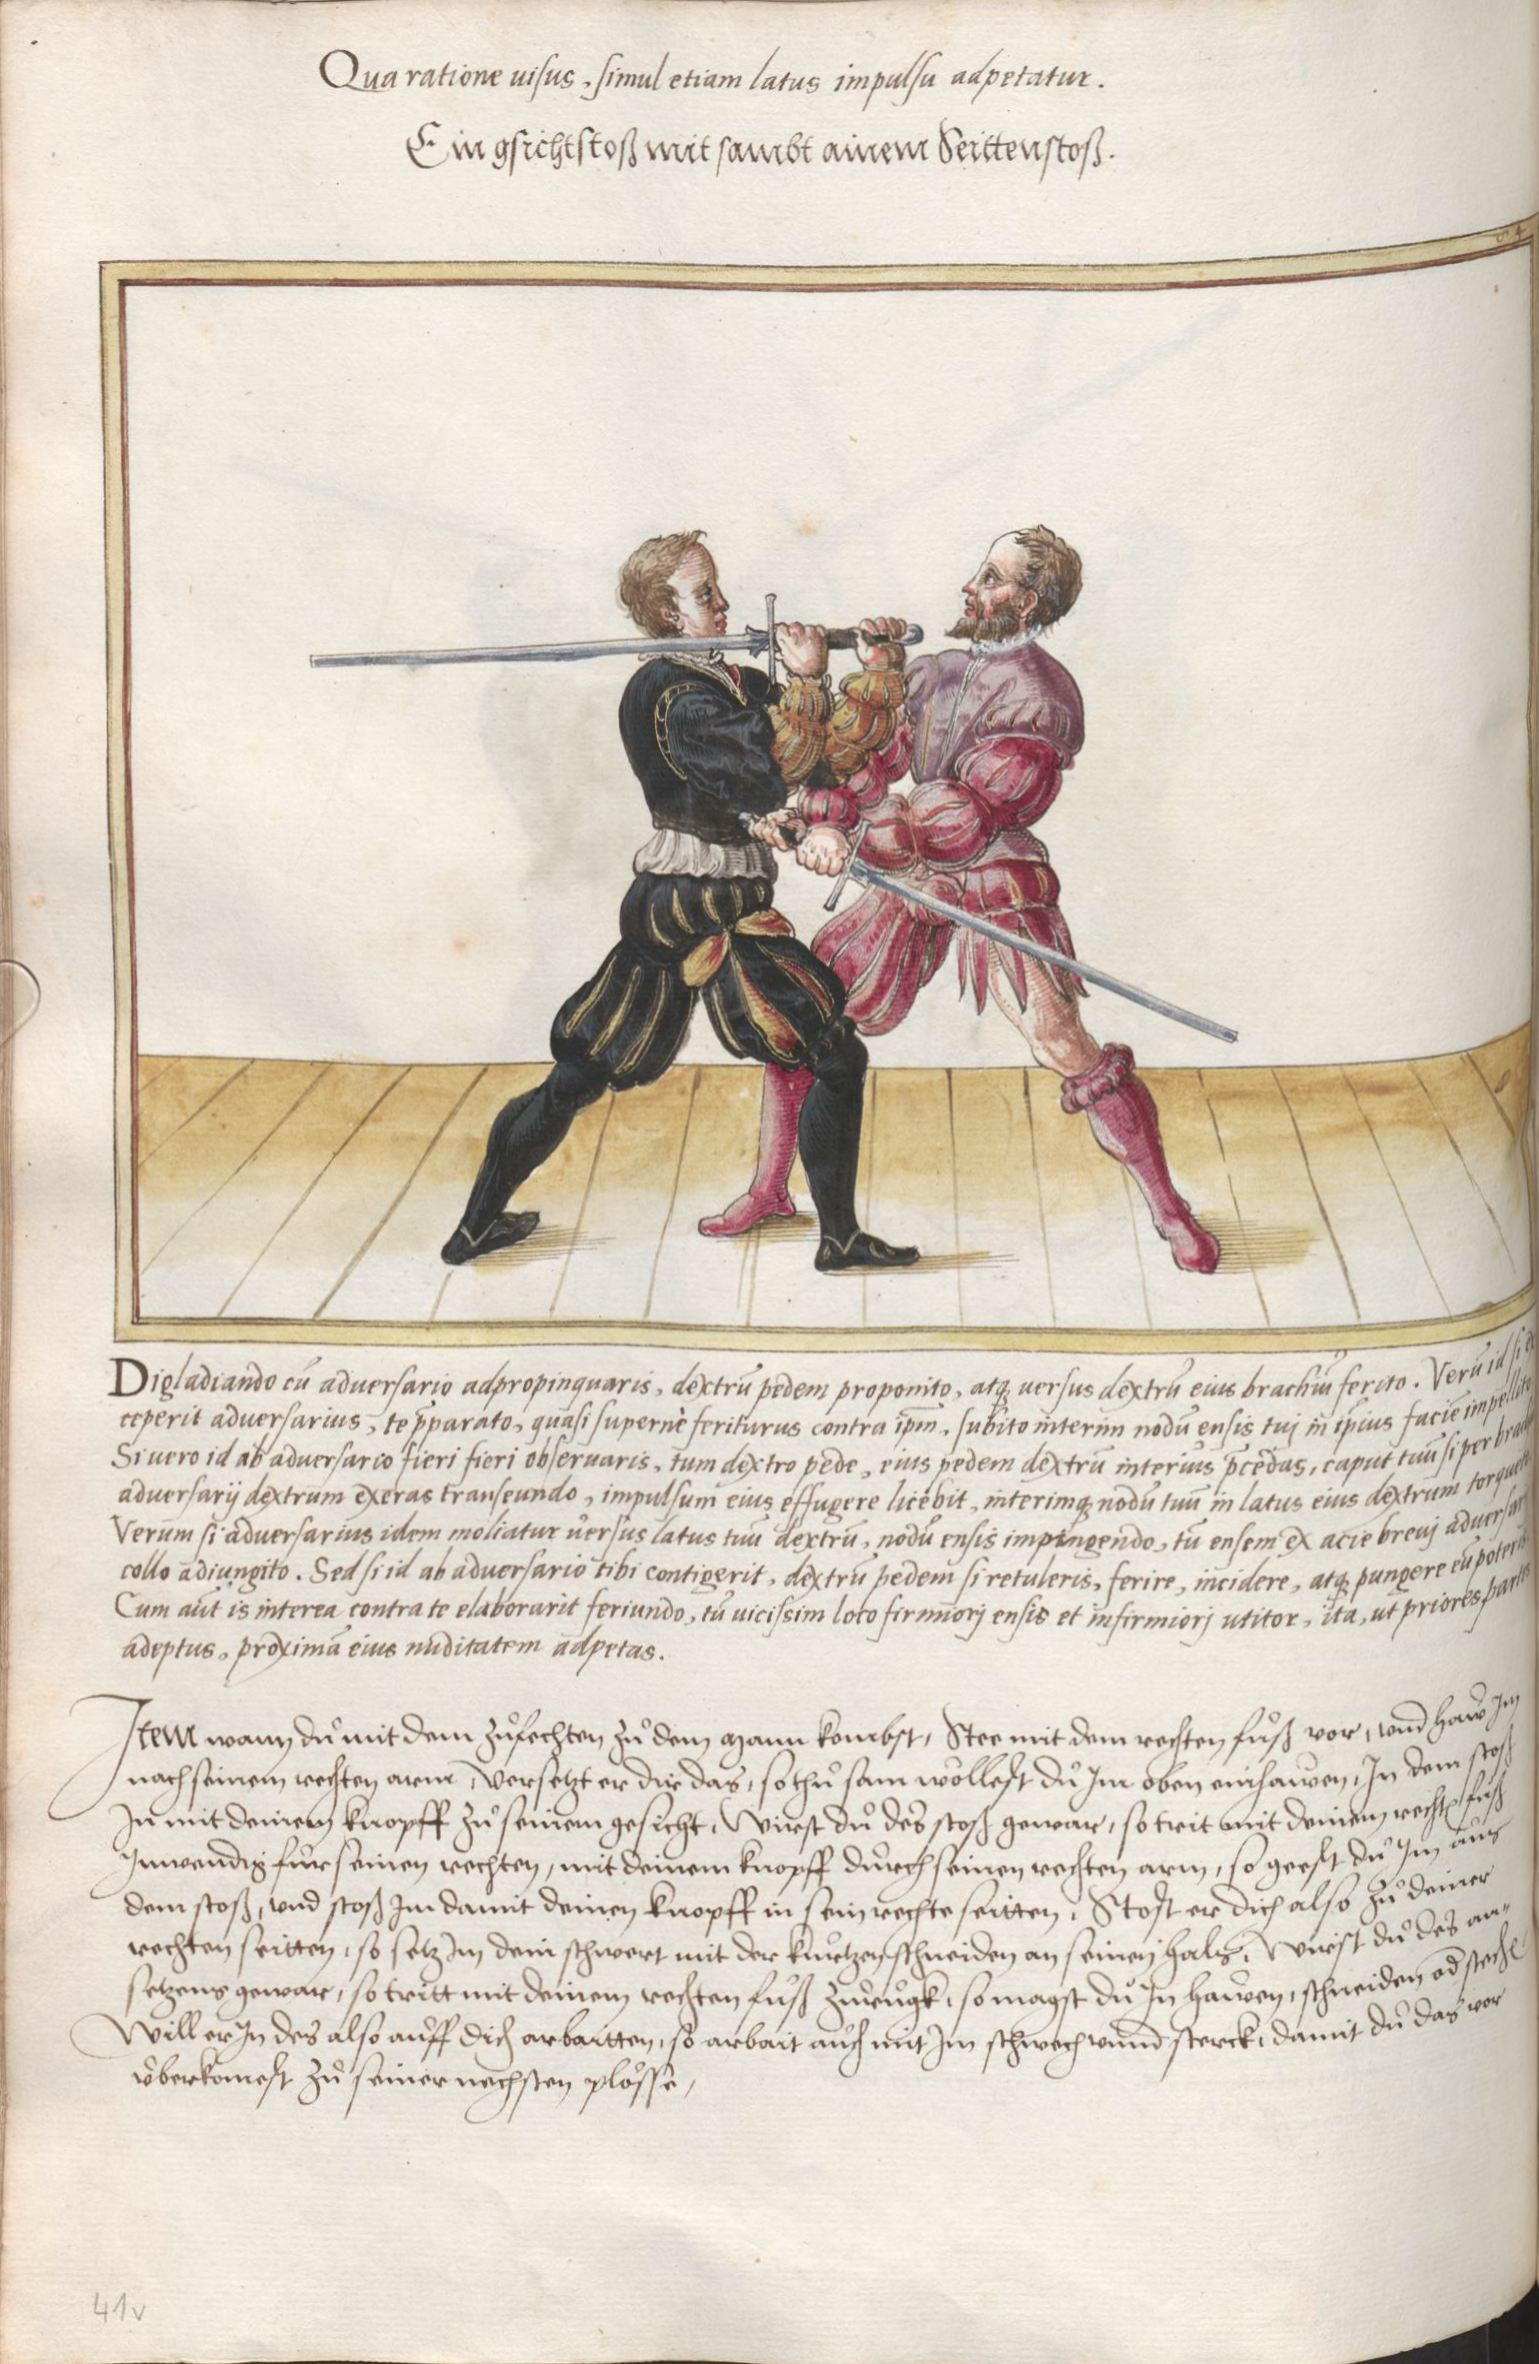 Qua ratione uisus, simul etiam latus impulsu adpetatur.
Ein gsichtstoß mit sambt ainem Seittenstoß.
Digladiando cũ adversario adpropinquaris, dextrũ pedem proponito, atq, versus dextrũ eius brachiũ ferito. Verũ id si
ceperit adversarius, te p̃parato, quasi supernè feriturus contra ip̃m, subito interim nodũ ensis tuj in ip̃ius faciẽ impellito
Si uero id ab adversario fieri fieri observaris, tum dextro pede, eius pedem dextrũ interius p̃cẽdas, caput tuũ si per
adversarij dextrum exeras transeundo, impulsum eius effugere licebit, interimq, nodũ tuũ in latus eius dextrum
Verum si adversarius idem moliatur versus latus tuũ dextrũ, nodũ ensis impingendo, tũ ensem ex acie brevj
collo adiungito. Sed si id ab adversario tibi contigerit, dextrũ pedem si retuleris, ferire, incidere, atq, pungere eũ poteris
Cum aũt is interea contra te elaborarit feriundo, tũ uicissim loco firmiorj ensis et infirmiorj utitor, ita, ut priores partes
adeptus, proximã eius nuditatem adpetas.
Item wann dů mit dem zůfechten zů dem Mann kombst, Stee mit dem rechten fůß vor, vnd haw Im
nach seinem rechten arm, Versetzt er dir das, so thů sam wöllest dů Im oben einhawen, In dem stoß
In mit deinem knopff zů seinem gesicht, Wirst dů des stoß gewar, so trit mit deinem recht fůß
Inwendig fůr seinen rechten, mit deinem knopff důrch seinen rechten arm, so geest dů Im aůs
dem stoß, vnd stoß Im damit deinen knopff in sein rechte seitten, Stost er dich also zů deiner
rechten seitten, so setz Im dein schwert mit der kůrtzen schneiden an seinen hals, Wirst dů des an-
setzens gewar, so tritt mit deinem rechten fůß zůrůgk, so magst dů In hawen, schneiden od steche
Will er In des also aůff dich arbaitten, so arbait aůch mit Im schwech vnnd sterck, damit dů das vor
vberkomest zů seiner nechsten plösse,
41v